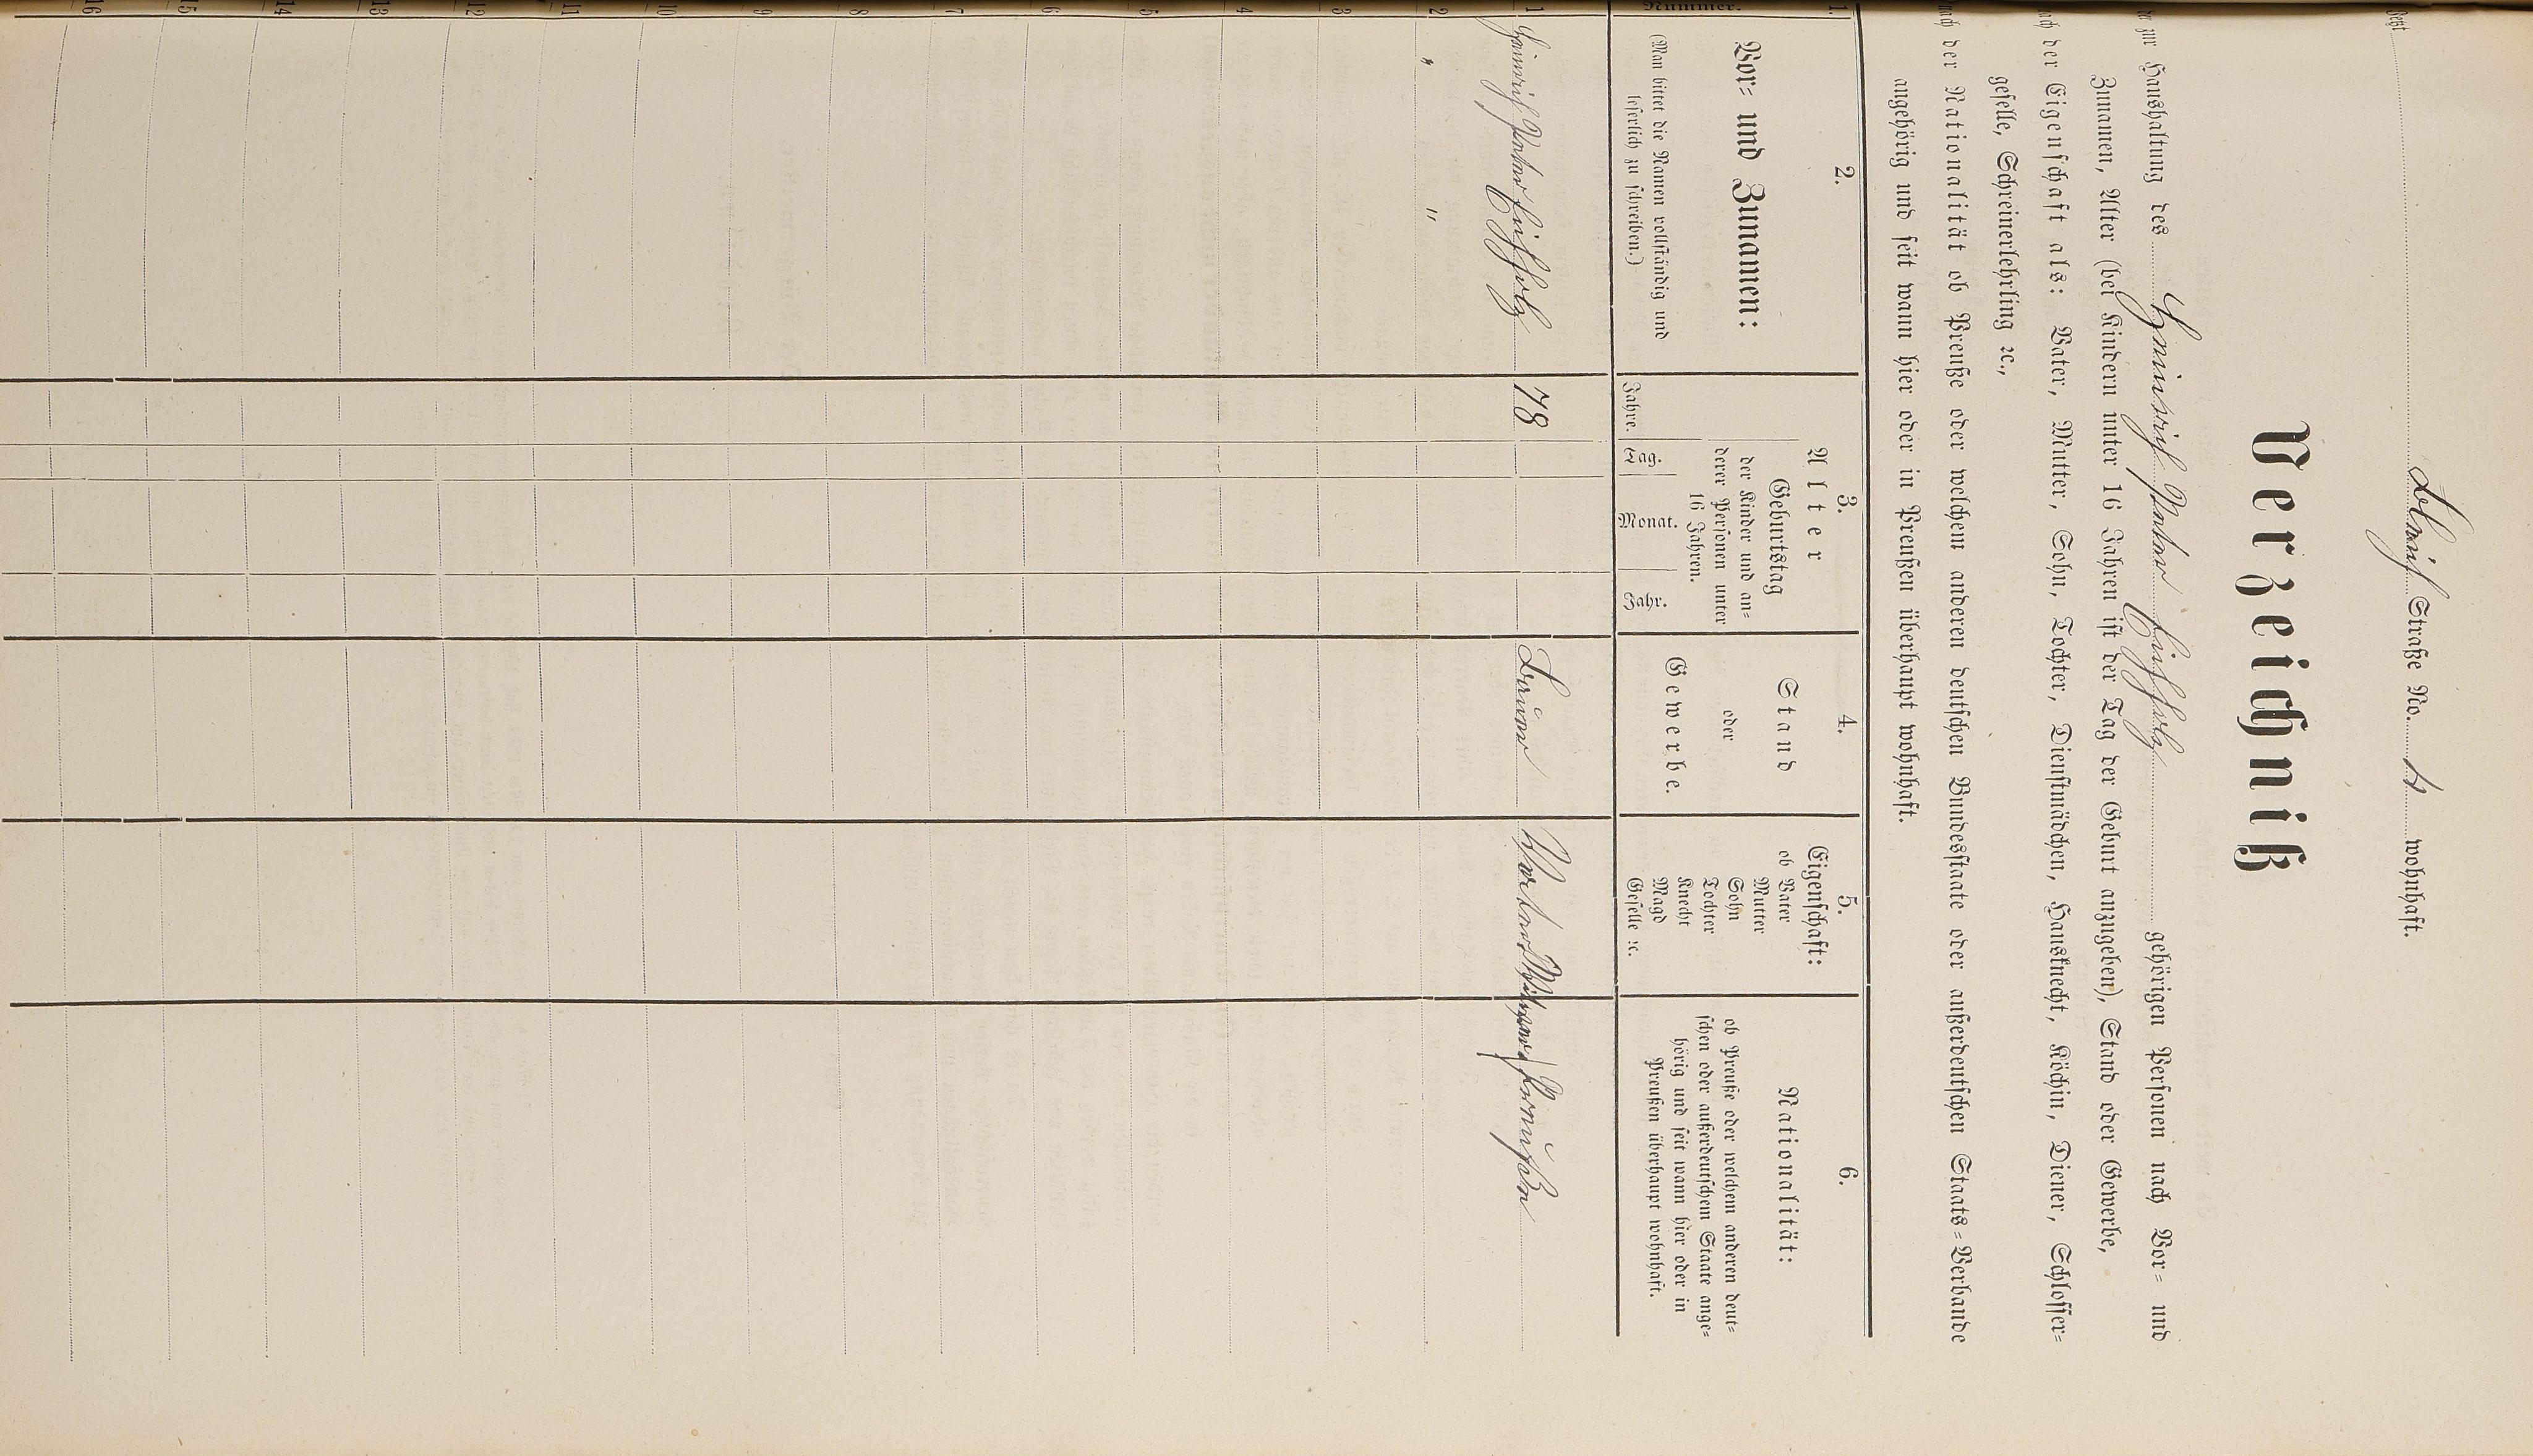 Jetzt Straße No. 4 wohnhaft.
Verzeichniß
der zur Haushaltung des Heinrich Peter gehörigen Personen nach Vor= und
Zunamen, Alter (bei Kindern unter 16 Jahren ist der Tag der Geburt anzugeben), Stand oder Gewerbe,
nach der Eigenschaft als: Vater, Mutter, Sohn, Tochter, Dienstmädchen, Hausknecht, Köchin, Diener, Schlosser=
geselle, Schreinerlehrling ꝛc.,
nach der Nationalität ob Preuße oder welchem anderen deutschen Bundesstaate oder außerdeutschen Staats=Verbande
angehörig und seit wann hier oder in Preußen überhaupt wohnhaft.
1.
Nummer.
2.
Vor= und Zunamen:
(Man bittet die Namen vollständig und
leserlich zu schreiben.)
3.
Alter
Jahre.
Geburtstag
der Kinder und an=
derer Personen unter
16 Jahren.
Tag. Monat. Jahr.
4.
Stand
oder
Gewerbe.
5.
Eigenschaft:
ob Vater
Mutter
Sohn
Tochter
Knecht
Magd
Geselle ꝛc.
6.
Nationalität:
ob Preuße oder welchem anderen deut=
schen oder außerdeutschem Staate ange=
hörig und seit wann hier oder in
Preußen überhaupt wohnhaft.
1 Heinrich Peter 78 Bauer Vater Witwer Preuße
2 " "
3
4
5
6
7
8
9
10
11
12
13
14
15
16